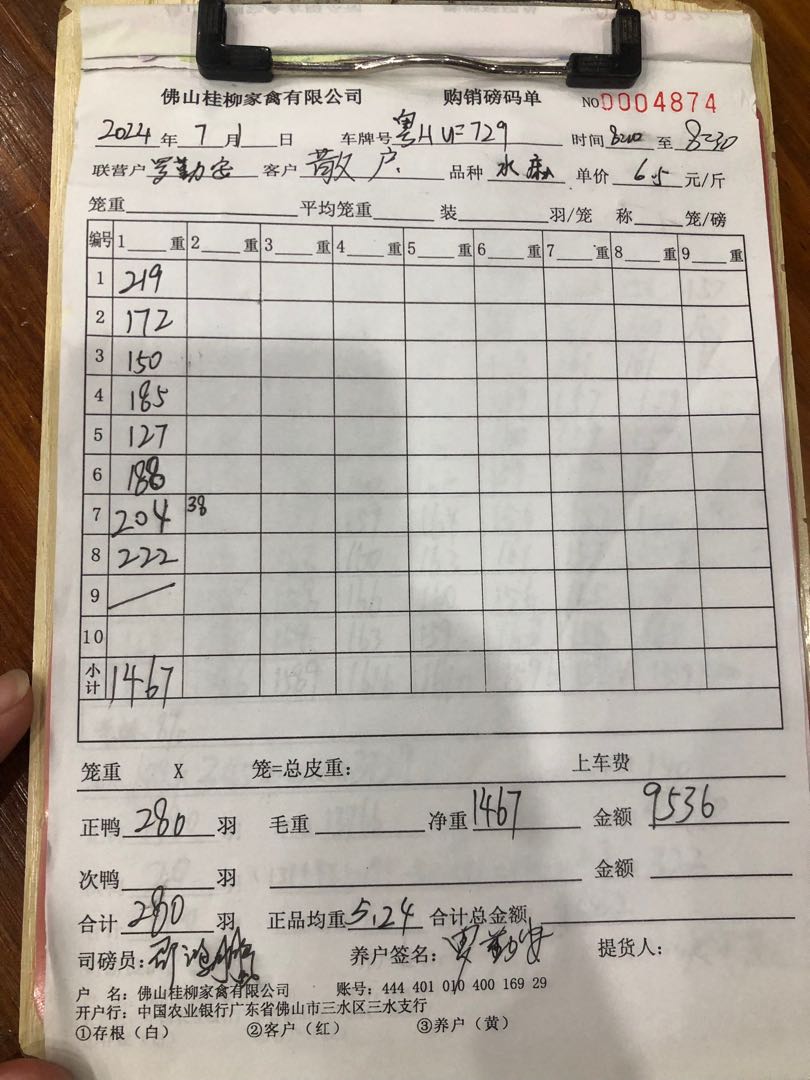 佛山桂柳家禽有限公司 购销磅码单 NO0004874
2024年7月1日 车牌号 粤H 729 时间 至 8:30
联营户 罗勤安 客户 散户 品种 水麻 单价 6.5 元/斤
笼重 平均笼重 装 羽/笼 称 笼/磅
编号 1 重 2 重 3 重 4 重 5 重 6 重 7 重 8 重 9 重
1 219
2 172
3 150
4 185
5 127
6 188
7 204 38
8 222
9 /
10
小计 1467
笼重 X 笼=总皮重: 上车费
正鸭 280 羽 毛重 净重 1467 金额 9536
次鸭 羽 金额
合计 280 羽 正品均重 5.24 合计总金额
司磅员: 养户签名: 罗勤安 提货人:
户 名: 佛山桂柳家禽有限公司 账号: 444 401 010 400 169 29
开户行: 中国农业银行广东省佛山市三水区三水支行
①存根(白) ②客户(红) ③养户(黄)